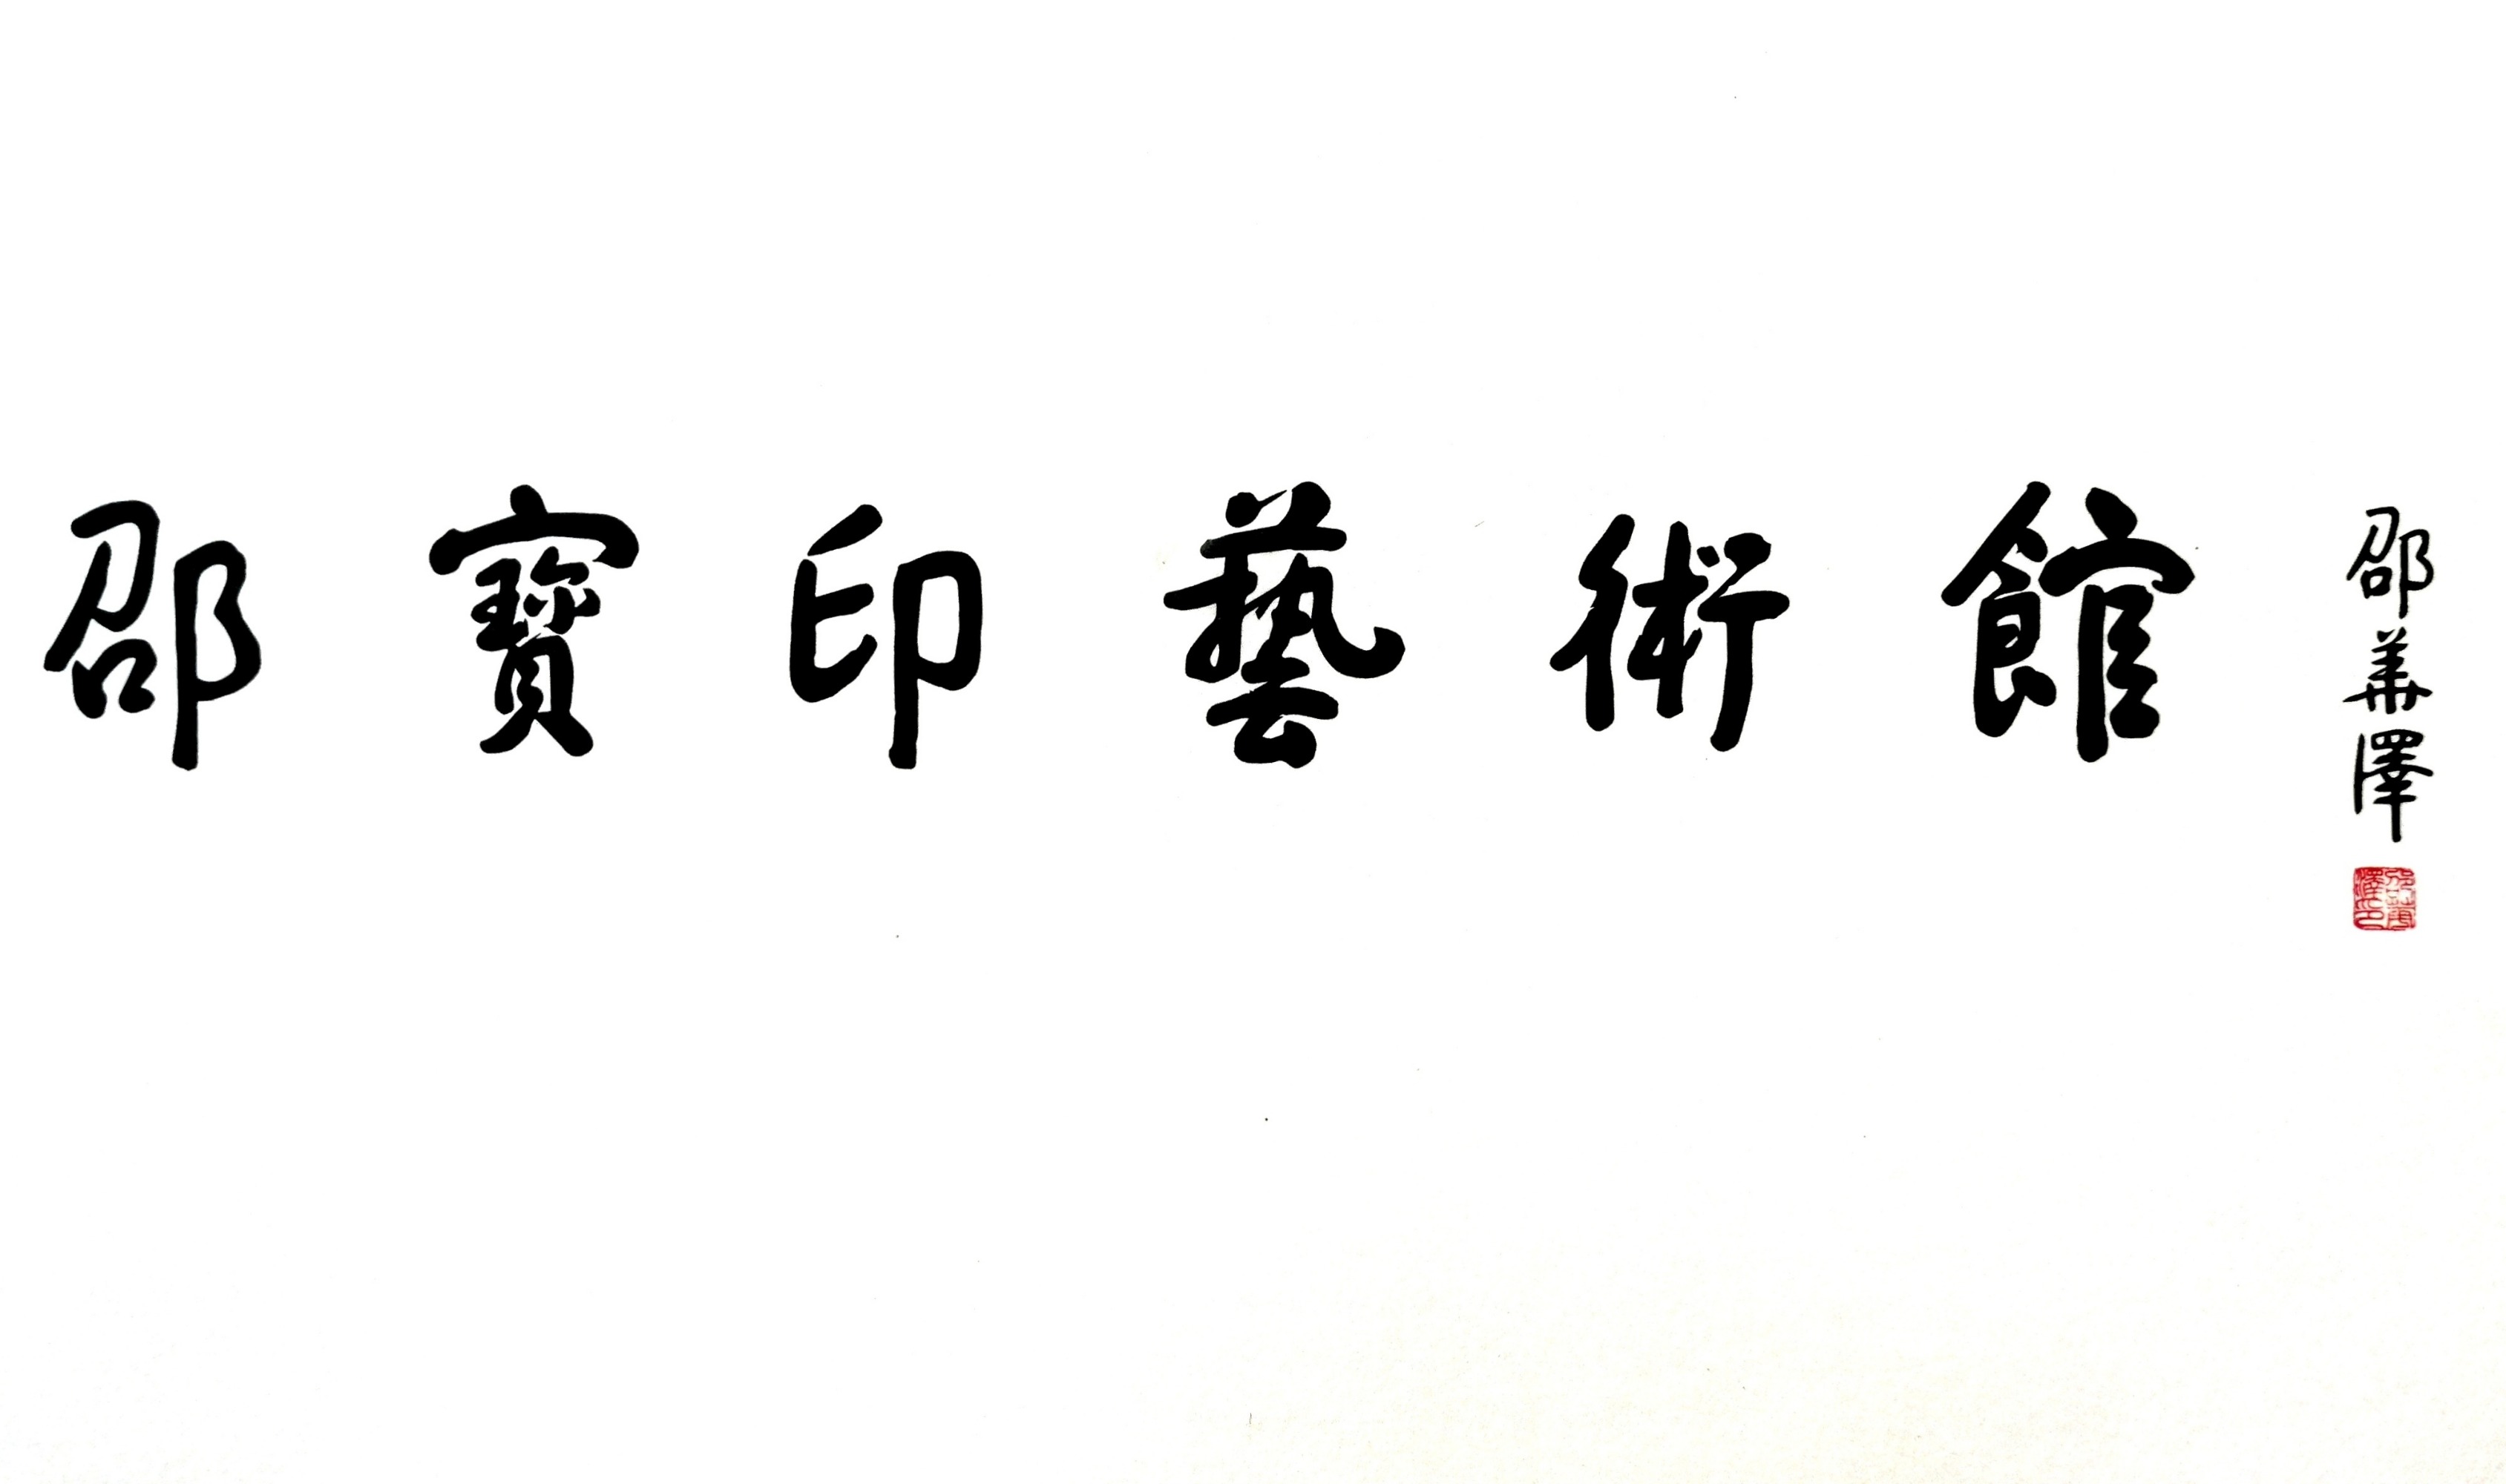 邵寶印藝術館
邵華澤